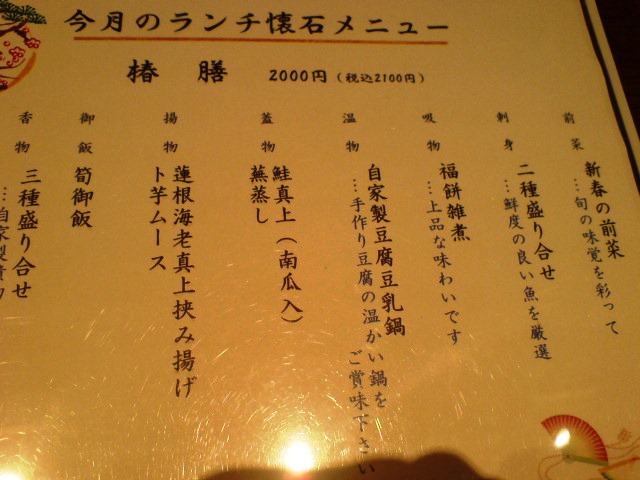 今月のランチ懐石メニュー
椿 膳 2000円（税込2100円）
前菜
新春の前菜
…旬の味覚を彩って
刺身
二種盛り合せ
…鮮度の良い魚を厳選
吸物
福餅雑煮
…上品な味わいです
温物
自家製豆腐豆乳鍋
…手作り豆腐の温かい鍋を
ご賞味下さい
蓋物
鮭真上（南瓜入）
蕪蒸し
揚物
蓮根海老真上挟み揚げ
ト芋ムース
御飯
筍御飯
香物
三種盛り合せ
…自家製